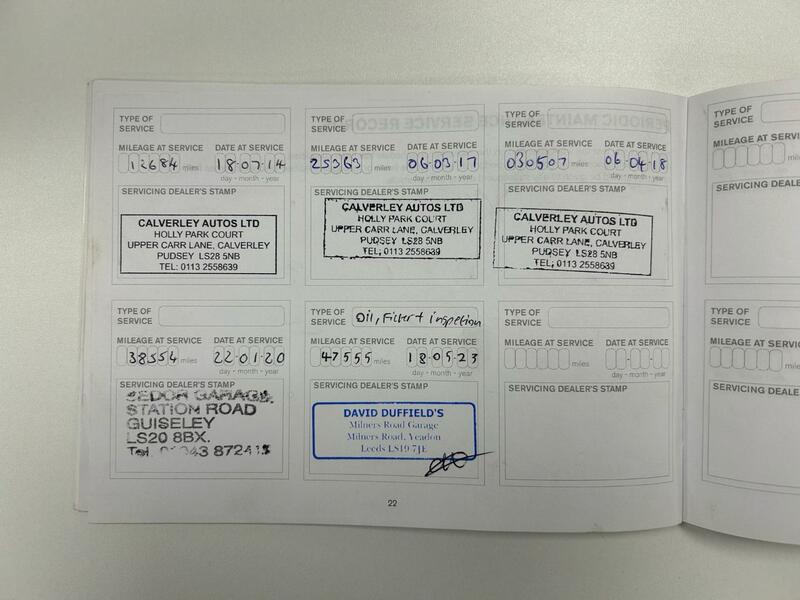 TYPE OF SERVICE
MILEAGE AT SERVICE DATE AT SERVICE
12684 miles 18-07-14
day - month - year
SERVICING DEALER'S STAMP
CALVERLEY AUTOS LTD
HOLLY PARK COURT
UPPER CARR LANE, CALVERLEY
PUDSEY LS28 5NB
TEL: 0113 2558639
TYPE OF SERVICE
MILEAGE AT SERVICE DATE AT SERVICE
25363 miles 06-03-17
day - month - year
SERVICING DEALER'S STAMP
CALVERLEY AUTOS LTD
HOLLY PARK COURT
UPPER CARR LANE, CALVERLEY
PUDSEY LS28 5NB
TEL; 0113 2558639
TYPE OF SERVICE
MILEAGE AT SERVICE DATE AT SERVICE
030507 miles 06-04-18
day - month - year
SERVICING DEALER'S STAMP
CALVERLEY AUTOS LTD
HOLLY PARK COURT
UPPER CARR LANE, CALVERLEY
PUDSEY LS28 5NB
TEL; 0113 2558639
TYPE OF SERVICE
MILEAGE AT SERVICE
SERVICING DEALER'S
TYPE OF SERVICE
MILEAGE AT SERVICE DATE AT SERVICE
38554 miles 22-01-20
day - month - year
SERVICING DEALER'S STAMP
GARAGE
STATION ROAD
GUISELEY
LS20 8BX.
Tel.
TYPE OF SERVICE Oil, Filter + inspetion
MILEAGE AT SERVICE DATE AT SERVICE
47555 miles 18-05-23
day - month - year
SERVICING DEALER'S STAMP
DAVID DUFFIELD'S
Milners Road Garage
Milners Road, Yeadon
Leeds LS19 7JE
TYPE OF SERVICE
MILEAGE AT SERVICE DATE AT SERVICE
miles
day - month - year
SERVICING DEALER'S STAMP
TYPE OF SERVICE
MILEAGE AT SERVICE
SERVICING DEALER'S
22